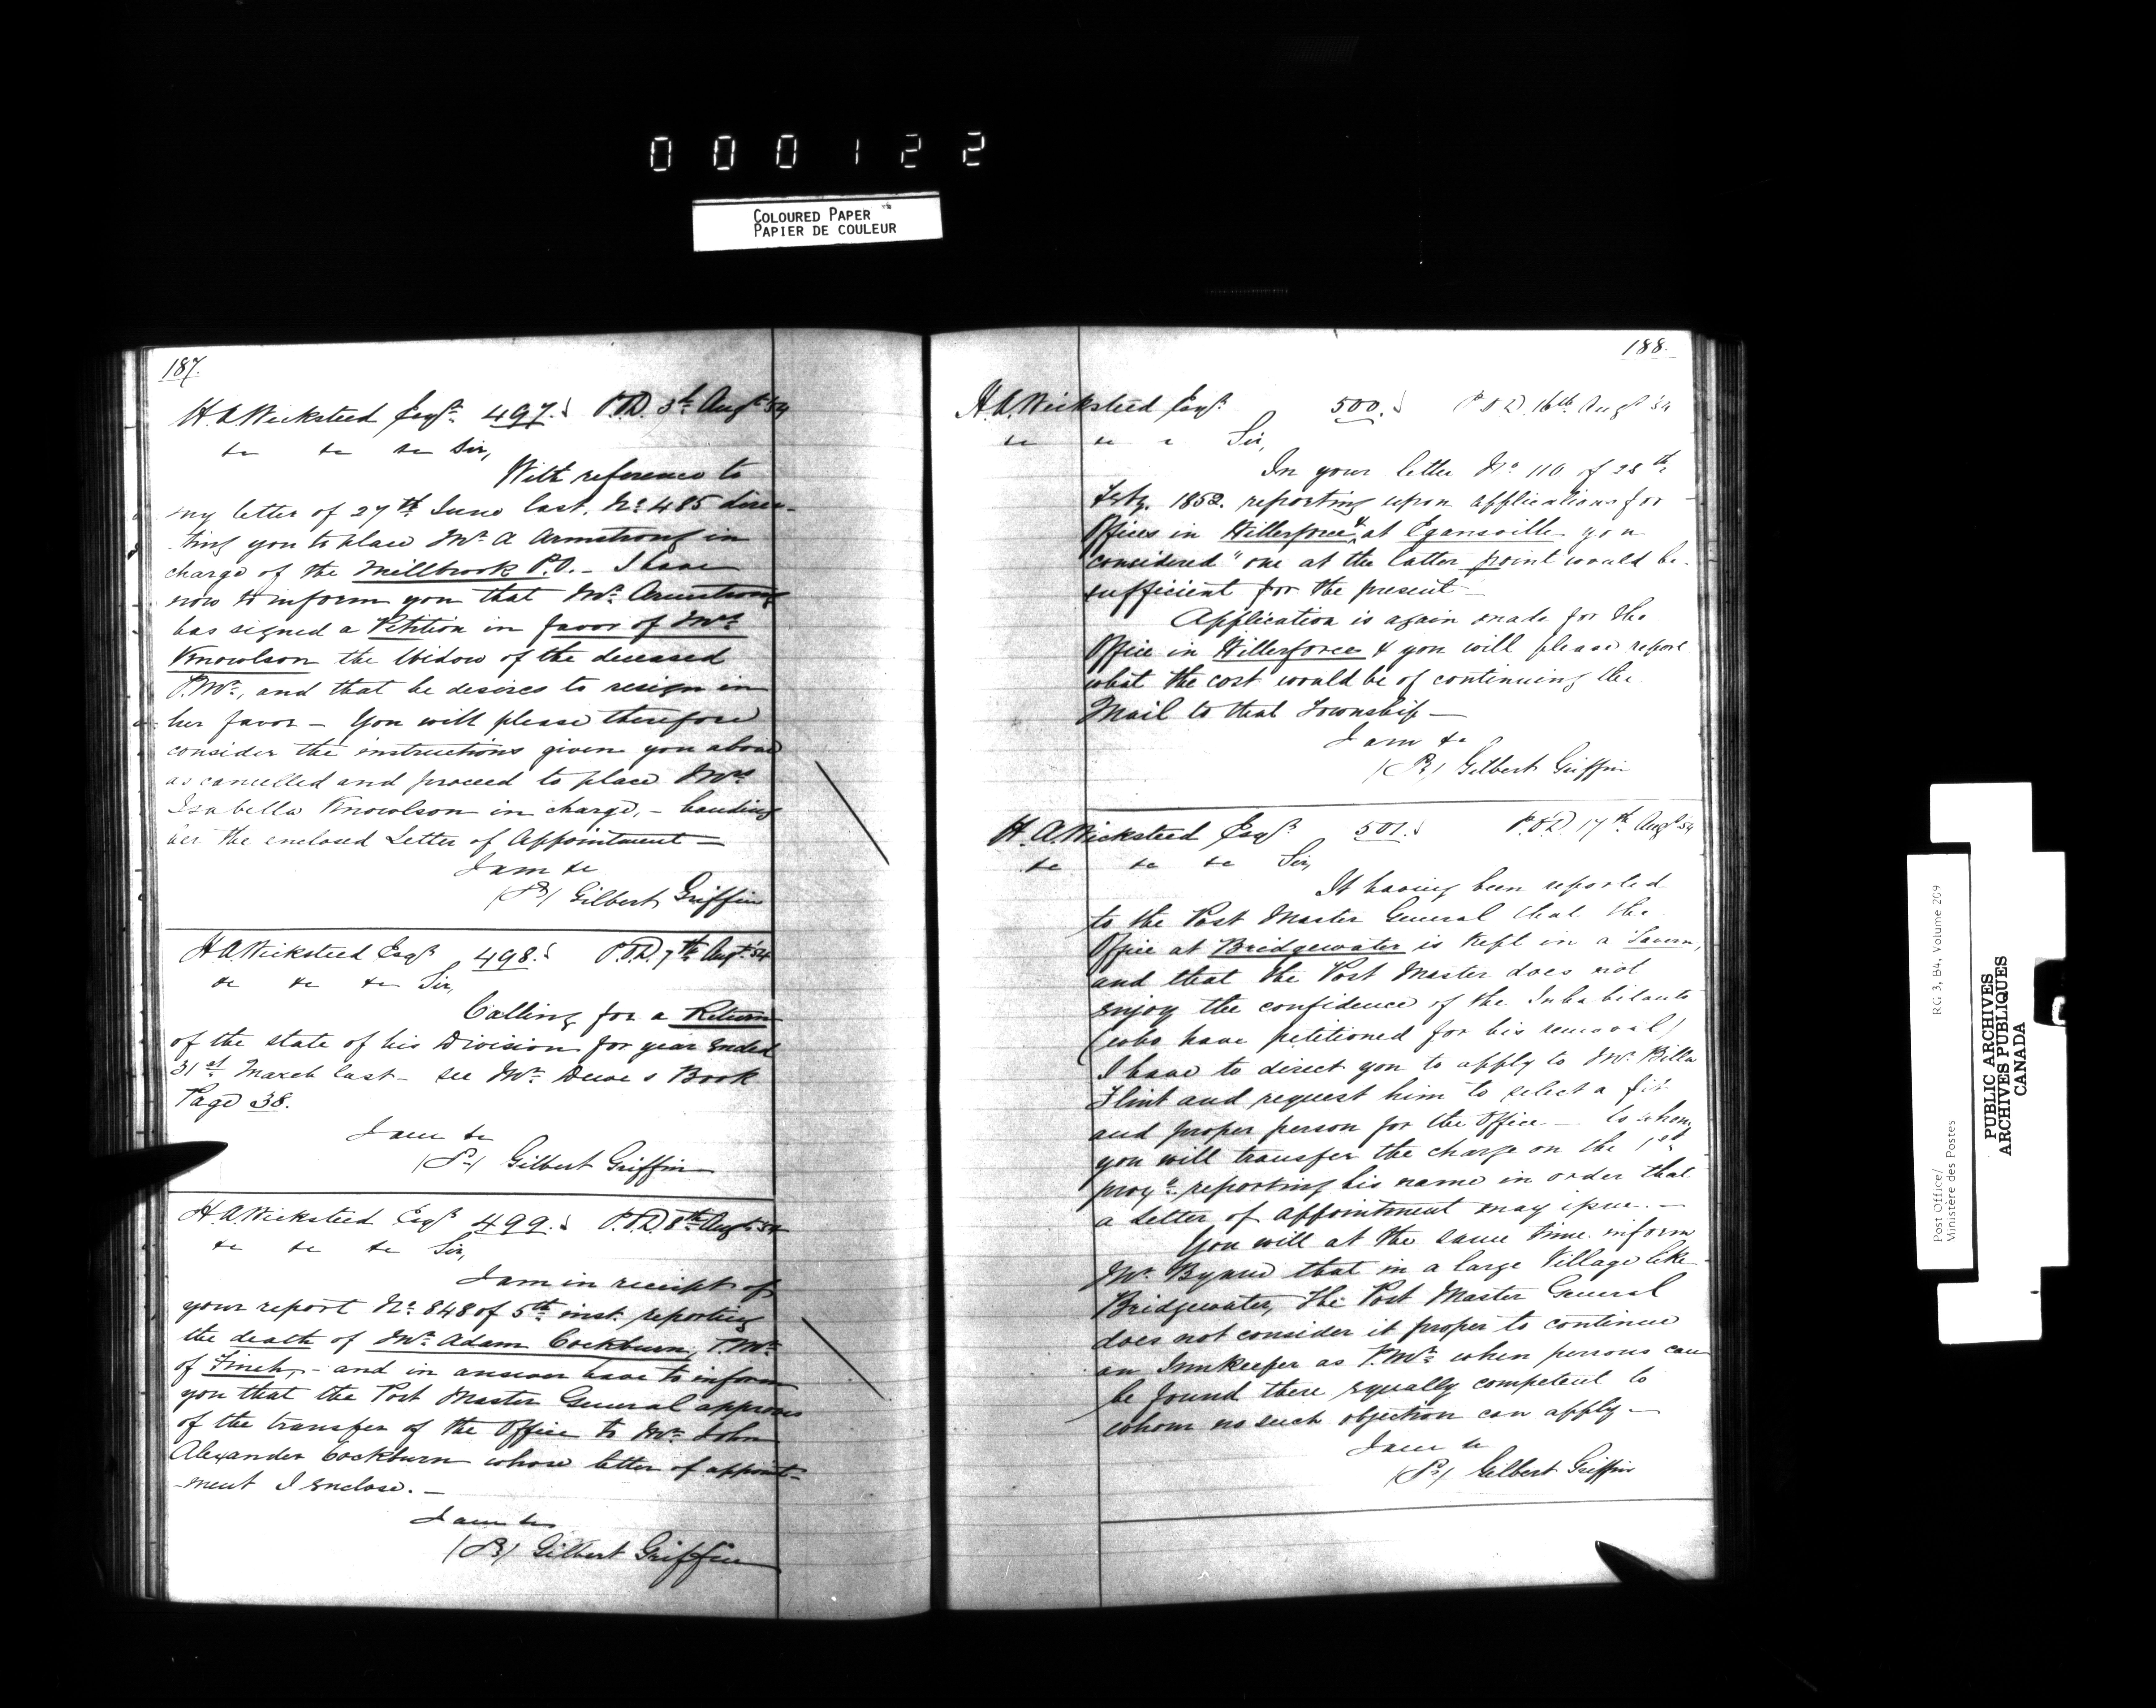 000122
COLOURED PAPER
PAPIER DE COULEUR
187.
H.A. Wicksteed Esqr. 497. P.O.D. 3d. Augt '54
&c &c &c Sir,
With reference to
my letter of 27th June last, No. 485 direc-
ting you to place Mr A Armstrong in
charge of the Millbrook P.O. - I have
now to inform you that Mr. Armstrong
has signed a Petition in favor of Mrs
Knowlson the Widow of the deceased
P.Mr., and that he desires to resign in
her favor - You will please therefore
consider the instructions given you above
as cancelled and proceed to place Mrs
Isabella Knowlson in charge, - handing
her the enclosed Letter of Appointment -
I am &c
Gilbert Griffin
H.A. Wicksteed Esqr. 498. P.O.D. 7th Augt. '54
&c &c &c Sir,
Calling for a Return
of the state of his Division for year ended
31st March last - see Mr. Dewe's Book
Page 38.
I am &c
Gilbert Griffin
H.A. Wicksteed Esqr. 499. P.O.D. 8th Augt '54
&c &c &c Sir,
I am in receipt of
your report No. 848 of 5th inst. reporting
the death of Mr. Adam Cockburn, P.Mr.
of Finch, - and in answer have to inform
you that the Post Master General approves
of the transfer of the Office to Mr. John
Alexander Cockburn whose letter of appoint-
-ment I enclose. -
I am &c
Gilbert Griffin
188.
H.A. Wicksteed Esqr. 500. P.O.D. 16th Augt '54
&c &c &c Sir,
In your letter No. 110 of 28th
Feby. 1852. reporting upon applications for
Offices in Wilberforce & at Egansville you
considered "one at the latter point would be
sufficient for the present
Application is again made for the
Office in Wilberforce & you will please report
what the cost would be of continuing the
Mail to that Township -
I am &c
Gilbert Griffin
H.A. Wicksteed Esqr. 501. P.O.D. 17th. Augt '54
&c &c &c Sir,
It having been reported
to the Post Master General that the
Office at Bridgewater is kept in a Tavern,
and that the Post Master does not
enjoy the confidence of the Inhabitants
(who have petitioned for his removal)
I have to direct you to apply to Mr. Billa
Flint and request him to select a fit
and proper person for the Office - to whom
you will transfer the charge on the 1st
proxo. reporting his name in order that
a letter of appointment may issue. -
You will at the same time inform
Mr. that in a large Village like
Bridgewater, the Post Master General
does not consider it proper to continue
an Innkeeper as P.Mr. when persons can
be found there equally competent to
whom no such objection can apply -
I am &c
Gilbert Griffin
Post Office/
Ministère des Postes
RG 3, B4, Volume 209
PUBLIC ARCHIVES
ARCHIVES PUBLIQUES
CANADA